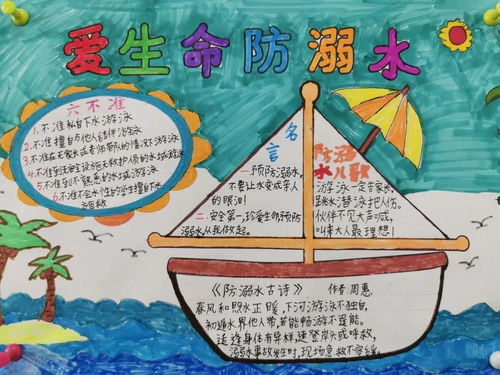 爱生命防溺水
六不准
1.不准私自下水游泳
2.不准擅自与他人结伴游泳
3.不准在无家长或老师带队的情况下游泳
4.不准到无安全设施无救护人员的水域游泳
5.不准到不熟悉的水域游泳
6.不准不会水性的学生擅自下水
施救
名言
一.预防溺水,
不要让水变成亲人
的眼泪!
二.安全第一,珍爱生命预防
溺水从我做起。
防溺
水儿歌
游泳一定告家长,
伙伴不见大声叫,
叫来大人最理想!
《防溺水古诗》 作者 周惠
春风和煦水正暖,下河游泳不独自,
初遇水界他人带,若能畅游不逞能。
适逢身体有异样,速登岸头或呼救,
溺水事故发生时,现场急救不容缓。